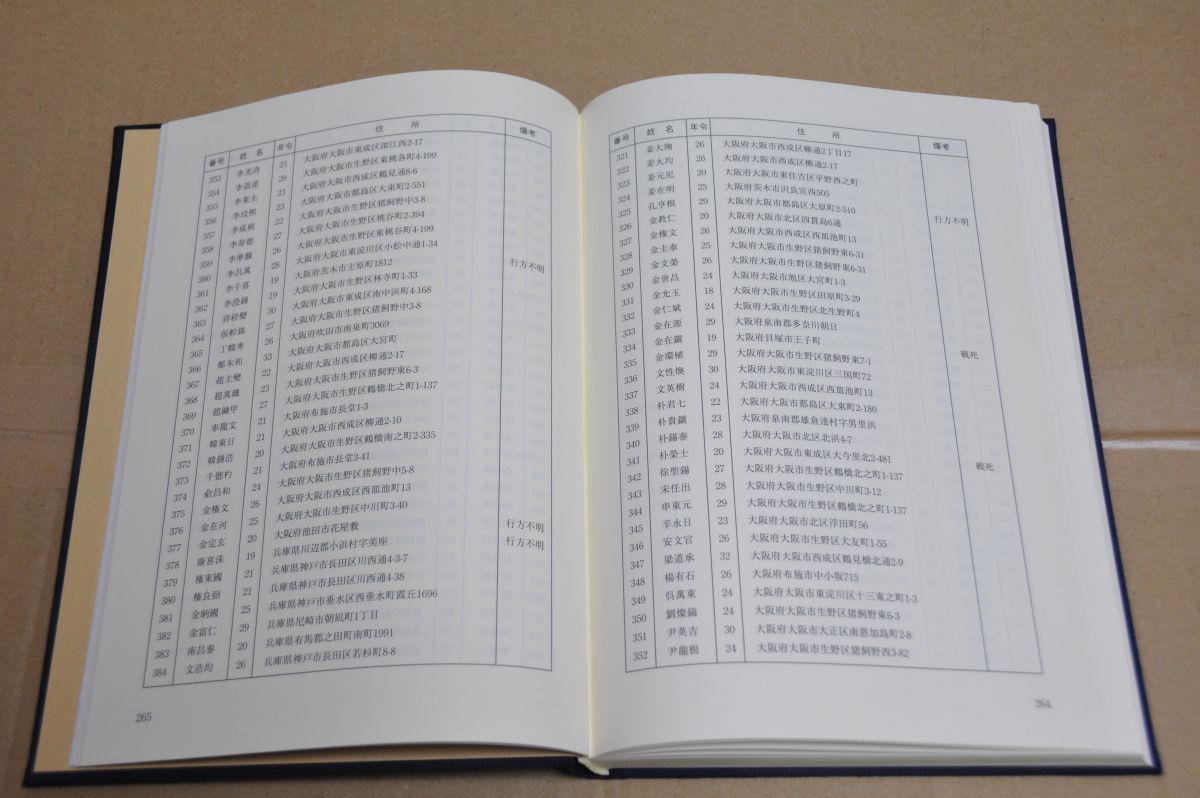 番号 姓名 年令 住所 備考
321 姜大掬 26 大阪府大阪市西成区柳通2丁目17
322 姜大均 26 大阪府大阪市西成区柳通2-17
323 姜元児 20 大阪府大阪市東住吉区平野西之町
324 姜在明 25 大阪府茨木市沢良宜西505
325 孔亨根 29 大阪府大阪市都島区大原町2-510
326 金教仁 20 大阪府大阪市北区四貫島6通 行方不明
327 金権文 26 大阪府大阪市西成区西皿池町13
328 金圭奉 25 大阪府大阪市生野区猪飼野東6-31
329 金文榮 26 大阪府大阪市生野区猪飼野東6-31
330 金世昌 24 大阪府大阪市旭区大宮町1-3
331 金允玉 18 大阪府大阪市生野区田原町3-29
332 金仁斌 24 大阪府大阪市生野区北生野町4
333 金在源 29 大阪府泉南郡多奈川朝日
334 金在鎭 19 大阪府貝塚市王子町
335 金環植 29 大阪府大阪市生野区猪飼野東7-1 戦死
336 文性煥 30 大阪府大阪市東淀川区三国町72
337 文英樹 24 大阪府大阪市西成区西皿池町13
338 朴君七 22 大阪府大阪市都島区大東町2-180
339 朴貴鎭 23 大阪府泉南郡雄倉達村字男里浜
340 朴錫泰 28 大阪府大阪市北区北浜4-7
341 朴榮士 20 大阪府大阪市東成区大今里北2-481
342 徐聖錫 27 大阪府大阪市生野区鶴橋北之町1-137 戦死
343 宋任出 28 大阪府大阪市生野区中川町3-12
344 申東元 29 大阪府大阪市生野区鶴橋北之町1-137
345 辛永日 23 大阪府大阪市北区浮田町56
346 安文官 26 大阪府大阪市生野区犬友町1-55
347 梁道承 32 大阪府大阪市西成区鶴見橋北通2-9
348 楊有石 26 大阪府布施市中小坂715
349 呉萬東 24 大阪府大阪市東淀川区十三東之町1-3
350 劉燦鎬 24 大阪府大阪市生野区猪飼野東6-3
351 尹英吉 30 大阪府大阪市大正区南恩加島町2-8
352 尹龍根 24 大阪府大阪市生野区猪飼野西3-82
264
番号 姓名 年令 住所 備考
353 李光浩 21 大阪府大阪市東成区深江西2-17
354 李道逑 29 大阪府大阪市生野区東桃谷町4-199
355 李東圭 23 大阪府大阪市西成区鶴見通8-6
356 李玟熙 23 大阪府大阪市都島区大東町2-551
357 李成根 22 大阪府大阪市生野区猪飼野中3-8
358 李寿徳 27 大阪府大阪市生野区桃谷町2-394
359 李準馥 26 大阪府大阪市生野区東桃谷町4-199
360 李昌萬 28 大阪府大阪市東淀川区小松中通1-34
361 李千喜 19 大阪府茨木市主原町1812 行方不明
362 李瑩鍾 19 大阪府大阪市生野区林寺町1-33
363 蒋経燮 30 大阪府大阪市東成区南中浜町4-168
364 張軫銖 27 大阪府大阪市生野区猪飼野中3-8
365 丁鶴秀 26 大阪府吹田市南泉町3069
366 鄭朱和 33 大阪府大阪市都島区大宮町
367 趙圭燮 22 大阪府大阪市西成区柳通2-17
368 趙萬鐵 23 大阪府大阪市生野区猪飼野東6-3
369 趙鏞甲 27 大阪府大阪市生野区鶴橋北之町1-137
370 車龍文 21 大阪府布施市長堂1-3
371 韓東日 21 大阪府大阪市西成区柳通2-10
372 韓鍾浩 20 大阪府大阪市生野区鶴橋南之町2-335
373 千徳杓 21 大阪府布施市長堂3-41
374 兪昌和 24 大阪府大阪市生野区猪飼野中5-8
375 金権文 26 大阪府大阪市西成区西皿池町13
376 金在河 25 大阪府大阪市生野区中川町3-40
377 金定玄 20 大阪府池田市花屋敷 行方不明
378 康喜洙 19 兵庫県川辺郡小浜村字美座 行方不明
379 権東國 21 兵庫県神戸市長田区川西通4-3-7
380 権良弼 21 兵庫県神戸市長田区川西通4-38
381 金昞國 25 兵庫県神戸市垂水区西垂水町霞丘1696
382 金富仁 29 兵庫県尼崎市朝凪町1丁目
383 南昌泰 20 兵庫県有馬郡之田町南町1991
384 文浩均 26 兵庫県神戸市長田区若杉町8-8
265